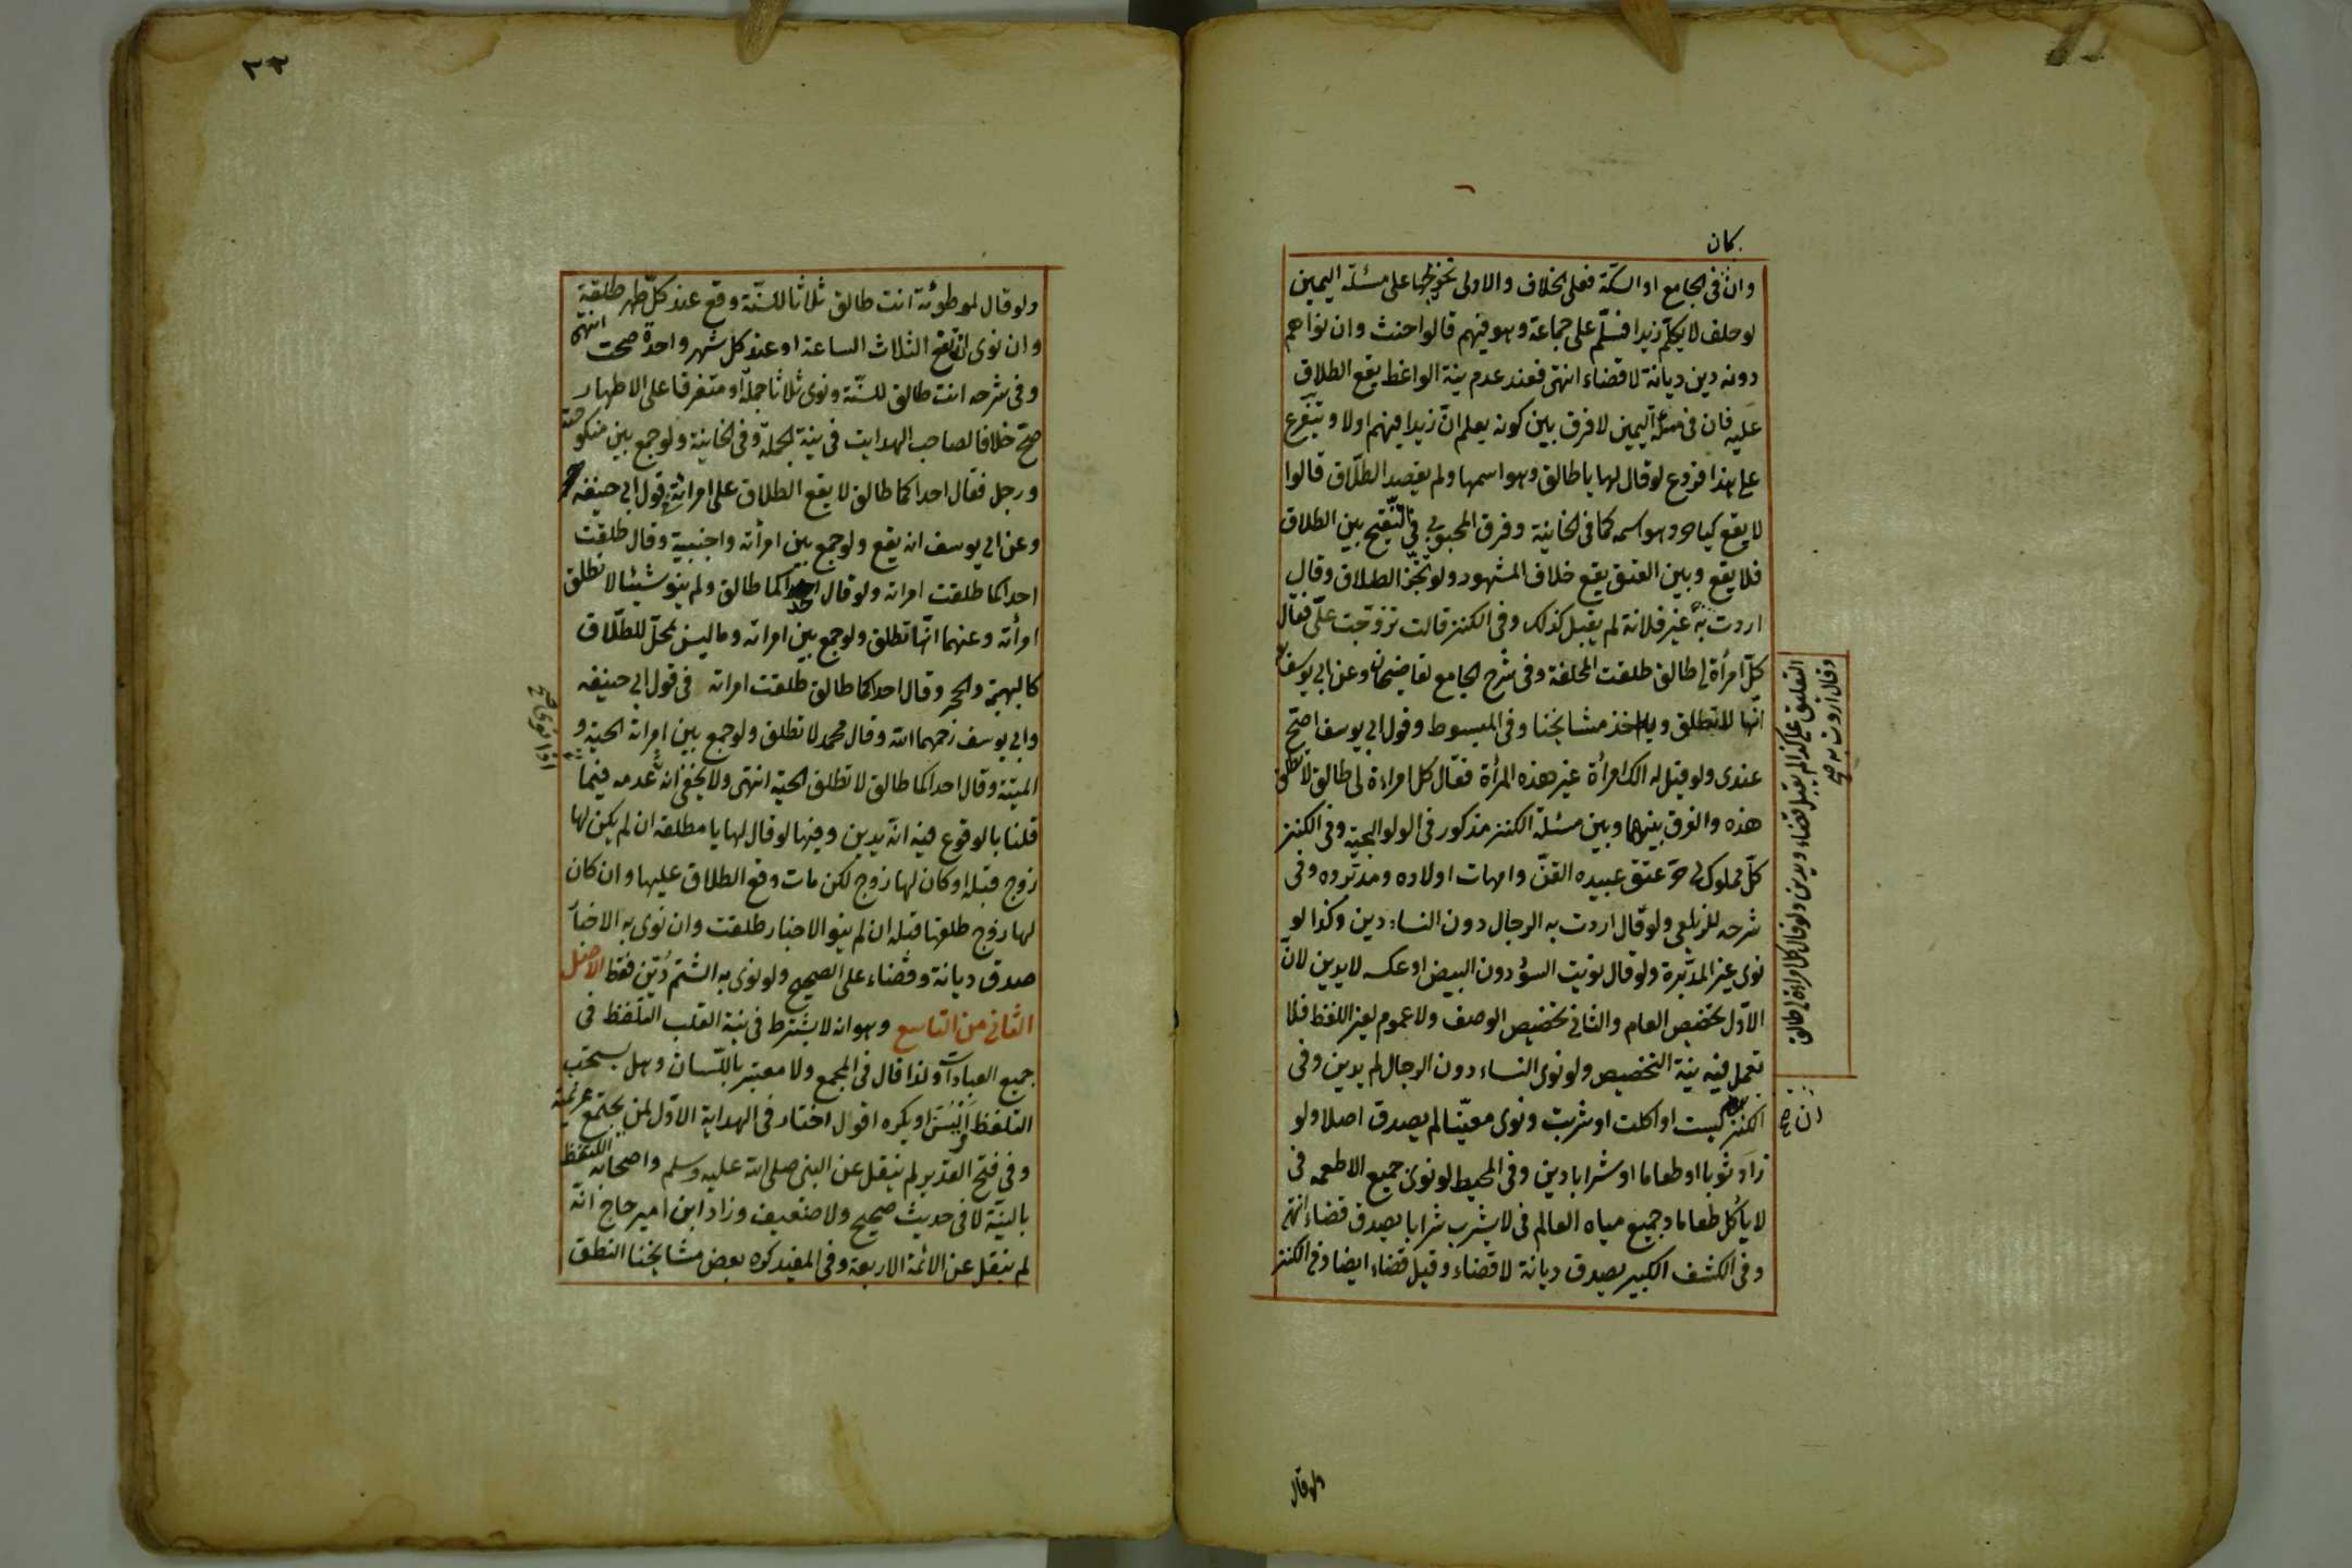 كان
وان في الجامع او السكة فعلى الخلاف والاولى تخريجها على مسئلة اليمين
لو حلف لا يكلم زيدا فسلّم على جماعة وهو فيهم قالوا حنث وان نواهم
دونه دين ديانة لا قضاء انتهى فعند عدم نية الواعظ يقع الطلاق
عليه فان في مسئلة اليمين لا فرق بين كونه يعلم انّ زيدا فيهم اولا ويتفرع
على هذا فروع لو قال لها يا طالق وهو اسمها ولم يقصد الطلاق قالوا
لا يقع كيا حر وهو اسمه كما في الخانية وفرق المحبوبي في التنقيح بين الطلاق
فلا يقع وبين العتق يقع خلاف المشهور ولو نجّز الطلاق وقال
اردت به غير فلانة لم يقبل كذلك وفى الكنز قالت تزوّجت علىّ فقال
كلّ امرأة لى طالق طلقت المحلفة وفى شرح الجامع لقاضيخان وعن ابى يوسف
انّها لا تطلق وبه اخذ مشايخنا وفى المبسوط وقول ابى يوسف اصحّ
عندى ولو قيل له الك امرأة غير هذه المرأة فقال كل امراءة لى طالق لا تطلق
هذه والفرق بينها وبين مسئلة الكنز مذكور فى الولوالجية وفى الكنز
كلّ مملوك لى حرّ عتق عبيده القنّ وامهات اولاده ومدبّروه وفى
شرحه للزيلعى ولو قال اردت به الرجال دون النساء دين وكذا لو
نوى غير المدبّرة ولو قال نويت السؤد دون البيض او عكسه لا يدين لانّ
الاوّل تخصيص العام والثانى تخصيص الوصف ولا عموم لغير اللفظ فلا
تعمل فيه نية التخصيص ولو نوى النساء دون الرجال لم يدين وفى
الكنز لبست او اكلت او شربت ونوى معيّنا لم يصدق اصلا ولو
زاد ثوبا او طعاما او شرابا دين وفى المحيط لو نوى جميع الاطعمه فى
لا يأكل طعاما وجميع مياه العالم فى لا يشرب شرابا يصدق قضاء انتهى
وفى الكشف الكبير يصدق ديانة لا قضاء وقيل قضاء ايضا وفى الكنز
وقال اردت به صح
ان صح
ولو قال
٢٣
ولو قال لموطوئة انت طالق ثلاثا للسنّة وقع عند كلّ طهر طلقة
وان نوى ان تقع الثلاث الساعة او عند كل شهر واحدة صحت انتهى
وفى شرحه انت طالق للسنّة ونوى ثلاثا جملة او متفرقا على الاطهار
صحّ خلافا لصاحب الهدايت فى نية الجملة وفى الخانية ولو جمع بين منكوحته
ورجل فقال احداكما طالق لا يقع الطلاق على امرأته فى قول ابى حنيفه
وعن ابى يوسف انه يقع ولو جمع بين امرأته واجنبية وقال طلقت
احداكما طلقت امراته ولو قال احداكما طالق ولم ينو شيئا لا تطلق
امرأته وعنهما انّها تطلق ولو جمع بين امراته وما ليس بمحلّ للطلاق
كالبهيمة والحجر وقال احداكما طالق طلقت امراته فى قول ابى حنيفه
وابى يوسف رحمهما الله وقال محمد لا تطلق ولو جمع بين امراته الحيّة و
الميتة وقال احداكما طالق لا تطلق الحية انتهى ولا يخفى انه عدمه فيما
قلنا بالوقوع فيه انه يدين وفيها لو قال لها يا مطلقة ان لم يكن لها
زوج قبله او كان لها زوج لكن مات وقع الطلاق عليها وان كان
لها زوج طلقها قبله ان لم ينو الاخبار طلقت وان نوى به الاخبار
صدق ديانة وقضاء على الصحيح ولو نوى به الشتم دُيّن فقط الاصل
الثانى من التاسع وهو انه لا يشترط فى نية القلب التلفظ فى
جميع العبادات ولذا قال فى المجمع ولا معتبر باللسان وهل يستحب
التلفظ او يسنّ او يكره اقول اختار فى الهداية الاوّل لمن لم تجتمع عزيمته
وفى فتح القدير لم ينقل عن النبى صلى الله عليه وسلم واصحابه التلفظ
بالنيّة لا فى حديث صحيح ولا ضعيف وزاد ابن امير حاج انّه
لم ينقل عن الائمة الاربعة وفى المفيد كره بعض مشايخنا النطق